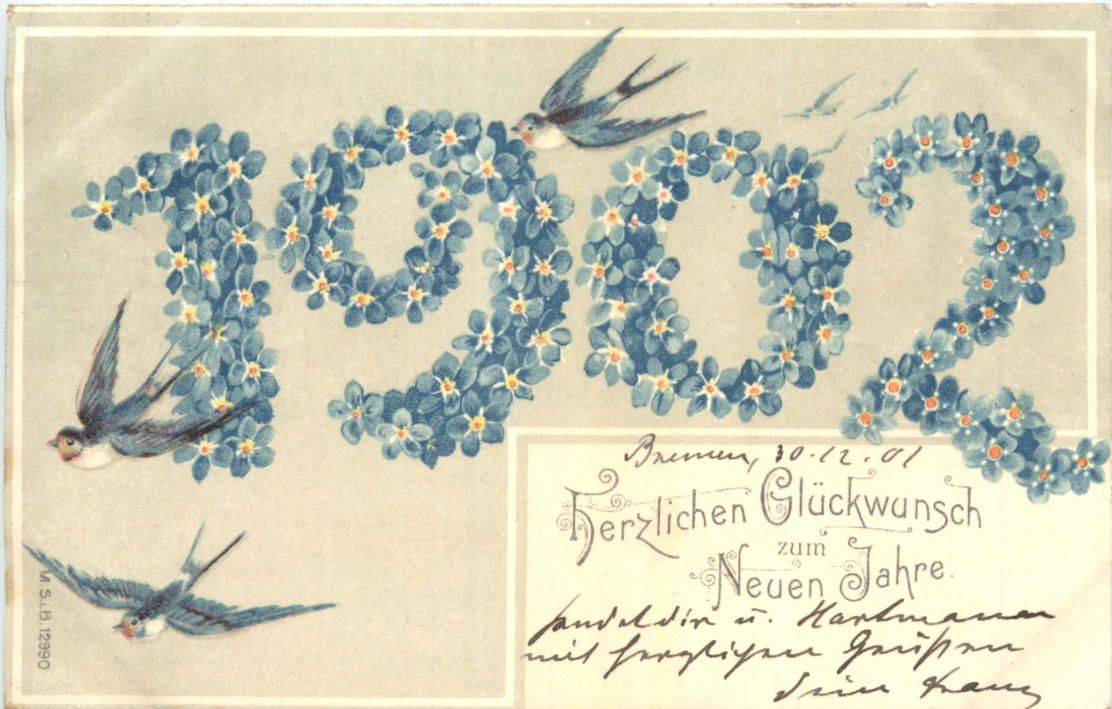 1902
Bremen, 30.12.01
Herzlichen Glückwunsch
zum
Neuen Jahre.
sendet dir u. Hartmann
mit herzlichen Grüßen
dein Franz
M.S.i.B. 12990